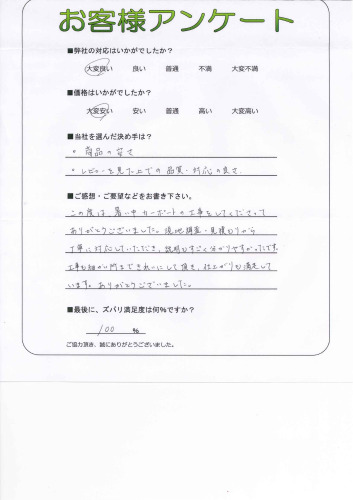 お客様アンケート
■弊社の対応はいかがでしたか?
大変良い 良い 普通 不満 大変不満
■価格はいかがでしたか?
大変安い 安い 普通 高い 大変高い
■当社を選んだ決め手は?
。商品の安さ
。レビューを見た上での品質・対応の良さ
■ご感想・ご要望などをお書き下さい。
この度は、暑い中カーポートの工事をしてくださって
ありがとうございました。現地調査・見積もりから
丁寧に対応していただき、説明もすごく分かりやすかったです。
工事も細かい所まできれいにして頂き、仕上がりも満足して
います。ありがとうございました。
■最後に、ズバリ満足度は何%ですか?
100 %
ご協力頂き、誠にありがとうございました。